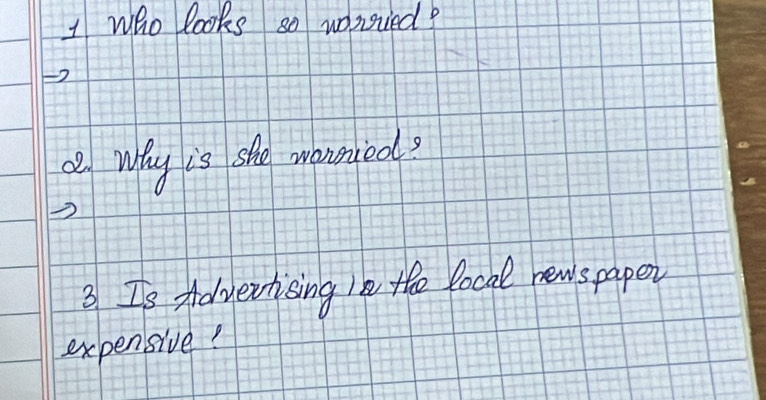 1 Who looks so worried?
→
2. Why is she worried?
→
3 Is Advertising in the local newspaper
expensive?